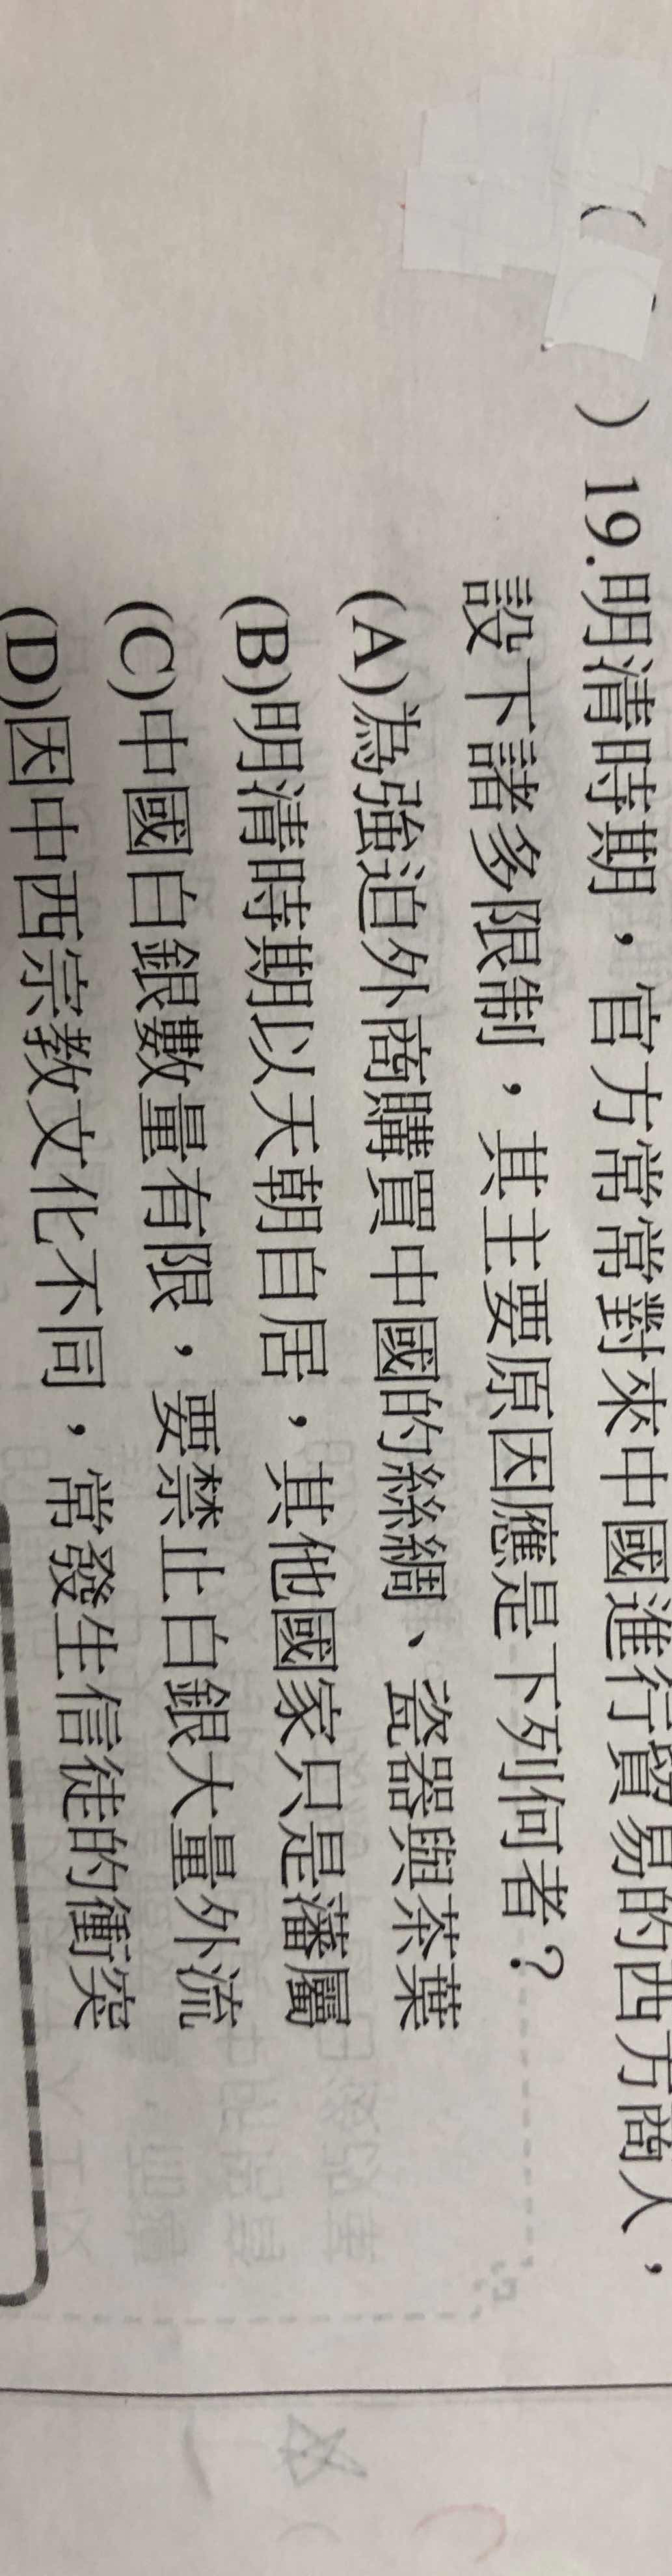 (　) 19.明清時期，官方常常對來中國進行貿易的西方商人，
設下諸多限制，其主要原因應是下列何者？
(A)為強迫外商購買中國的絲綢、瓷器與茶葉
(B)明清時期以天朝自居，其他國家只是藩屬
(C)中國白銀數量有限，要禁止白銀大量外流
(D)因中西宗教文化不同，常發生信徒的衝突